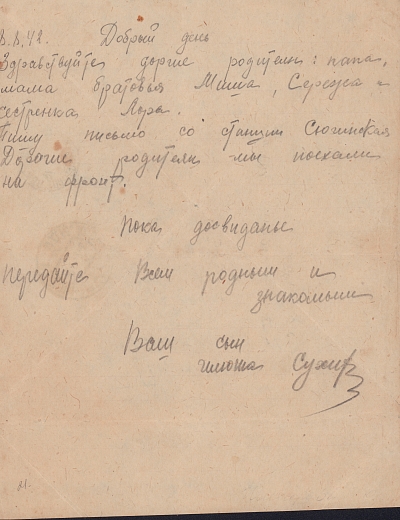 8.8.42. Добрый день
Здравствуйте доргие родители: папа,
мама братовья Миша, Сережа и
сестренка Лора.
Пишу письмо со станции Сюгинская
Дорогие родители мы поехали
на фронт.
Пока досвиданье
передайте Всем родным и
знакомым
Ваш сын